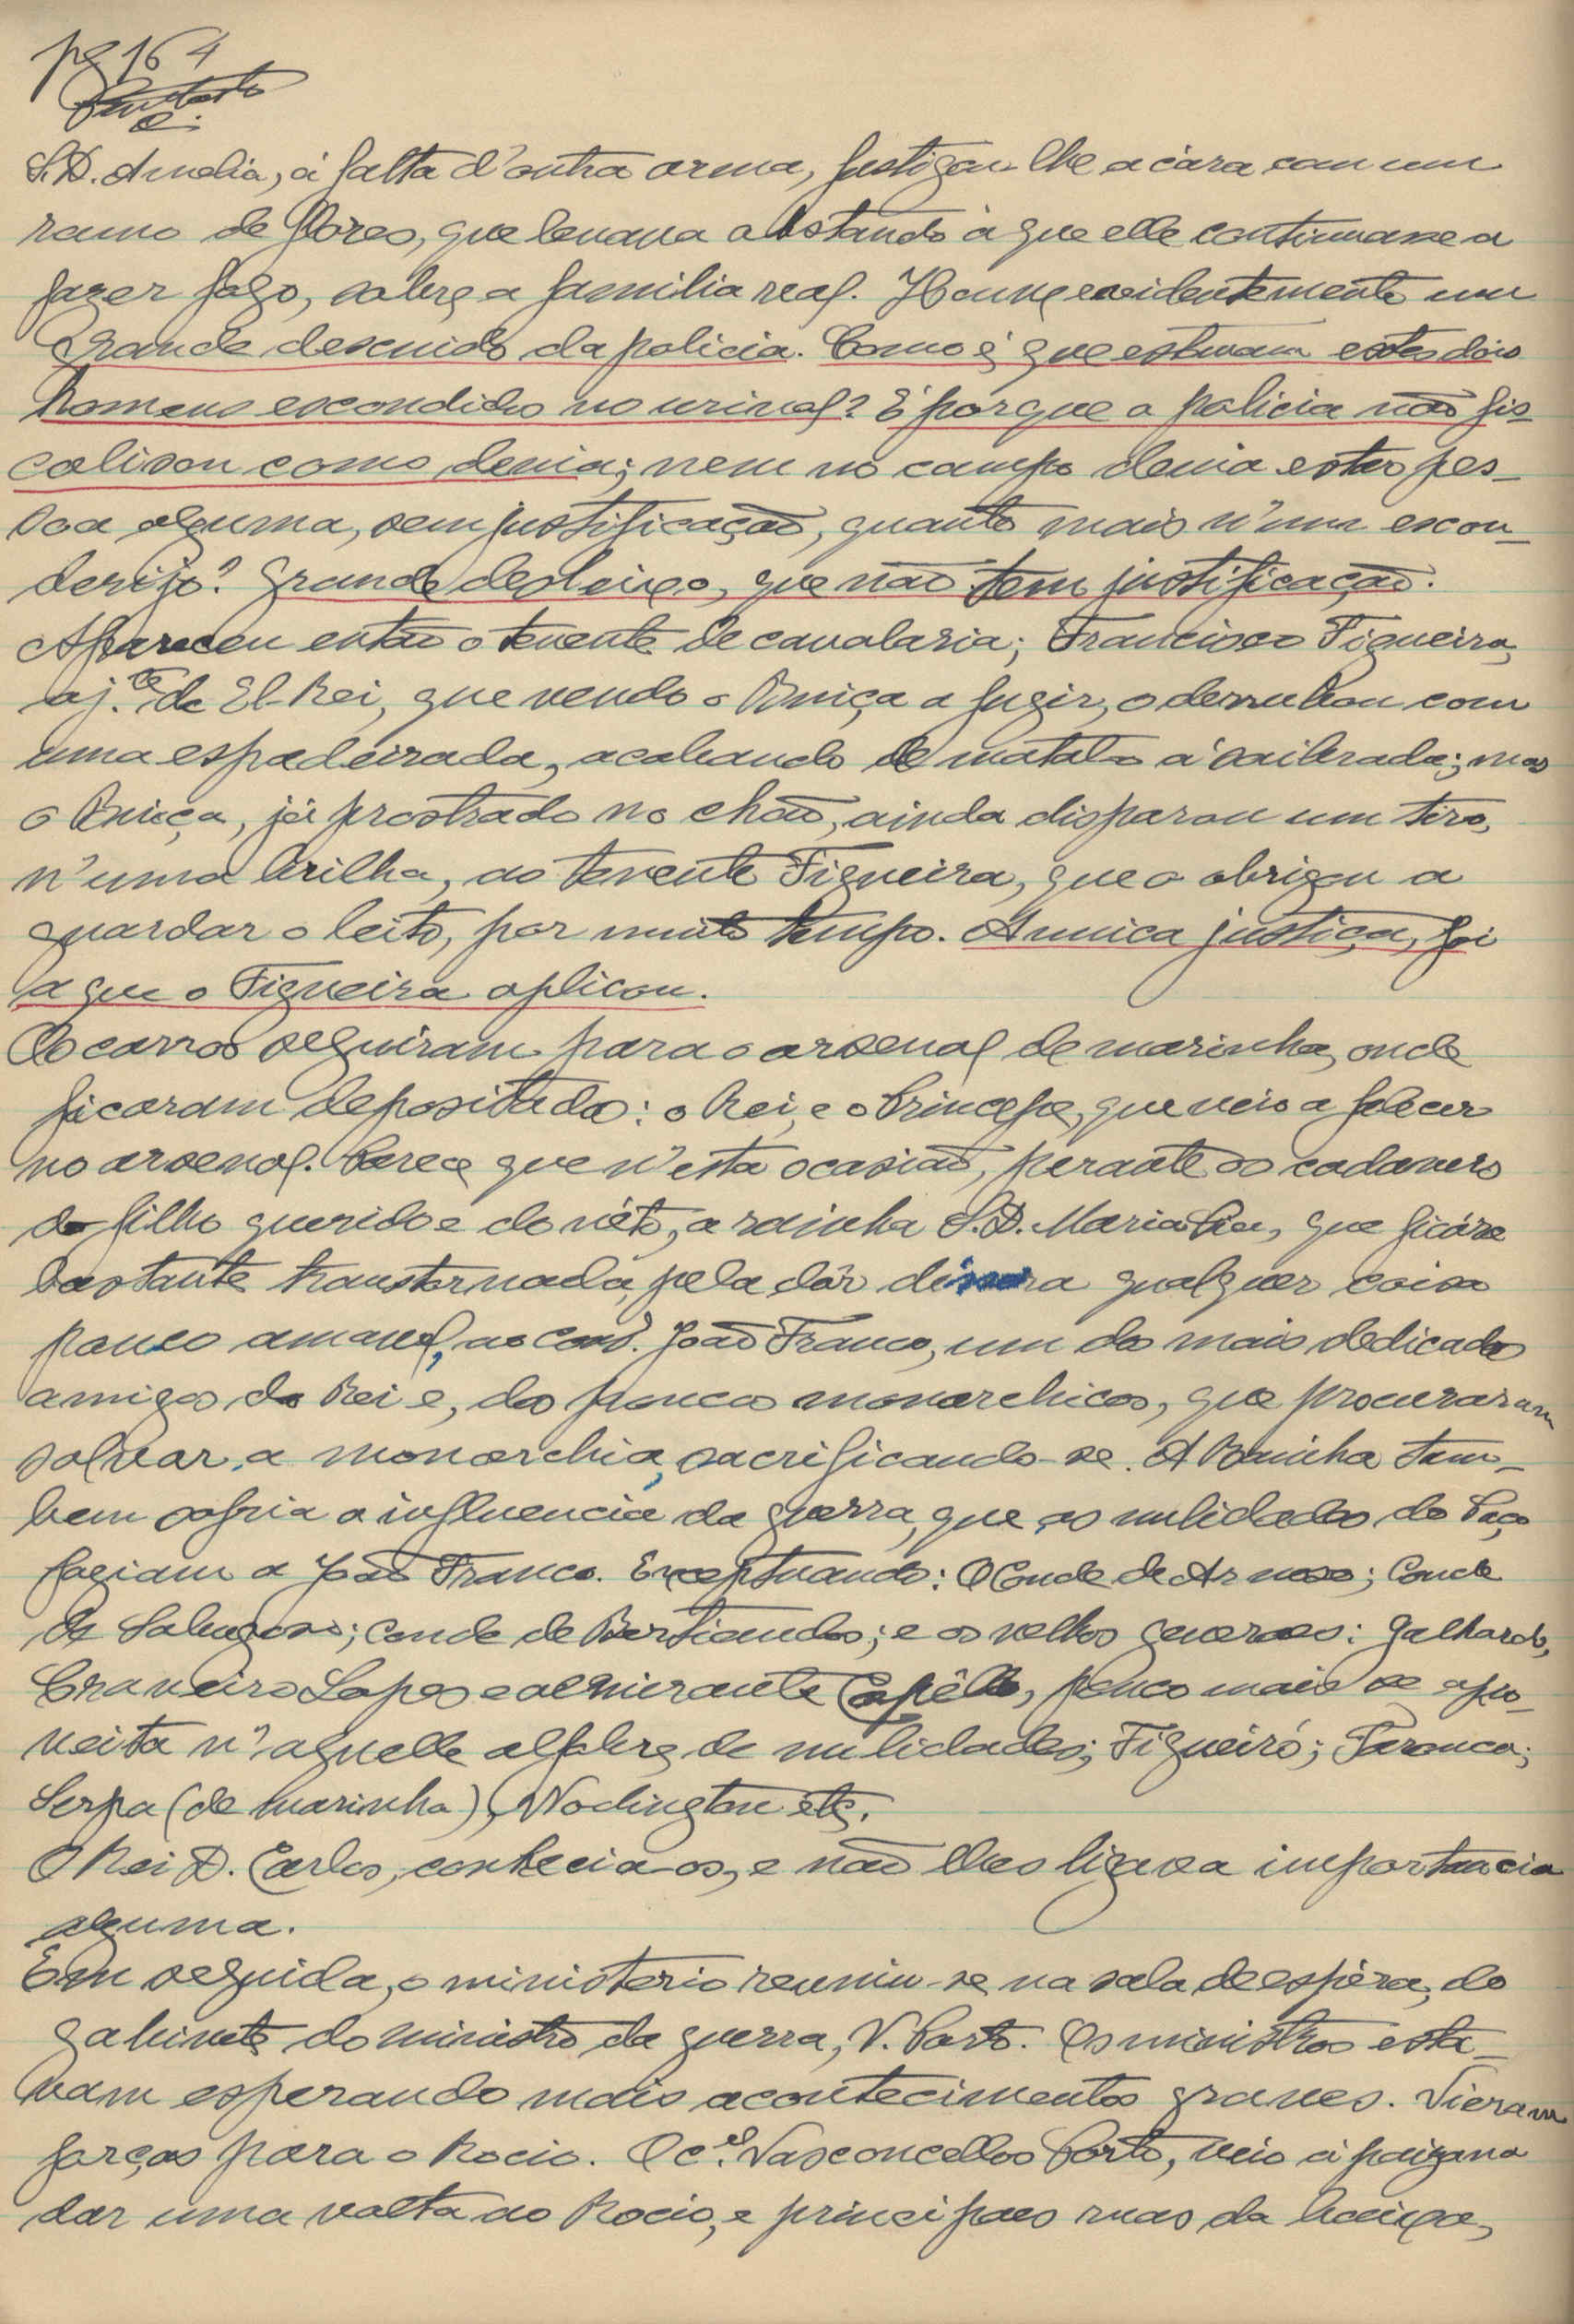 pg 164
S.D. Amelia, á falta d'outra arma, fustigou-lhe a cára com um
ramo de flôres, que levava obstando a que elle continuasse a
fazer fôgo, sobre a familia real. Houve evidentemente um
grande descuido da policia. Como é que estavam estes dois
homens escondidos no urinol? É porque a policia não fis-
calisou como devia; nem no campo devia estar pes-
soa alguma, sem justificação, quanto mais n'um escon-
derijo? Grande desleixo, que não tem justificação.
Apareceu então o tenente de cavalaria; Francisco Figueira,
aj.te de El-Rei, que vendo o Buiça a fugir, o derrubou com
uma espadeirada, acabando de matal-o á coilerada; mas
o Buiça, já prostrado no chão, ainda disparou um tiro,
n'uma virilha, ao tenente Figueira, que o obrigou a
guardar o leito, por muito tempo. A unica justiça, foi
a que o Figueira aplicou.
Os carros seguiram para o arsenal de marinha, onde
ficaram depositados: o Rei, e o Principe, que veio a falecer
no arsenal. Parece que n'esta ocasião, perante os cadaveres
do filho querido e do néto, a rainha S.D. Maria Pia, que ficára
bastante transtornada, pela dôr dissera qualquer coisa
pouco amavel, ao cons.º João Franco, um dos mais dedicados
amigos do Rei e, dos poucos monarchicos, que procuraram
salvar, a monarchia, sacrificando-se. A Rainha tam-
bem sofria a influencia da guerra, que as nulidades do Paço
faziam a João Franco. Exceptuando: O Conde de Arnoso; Conde
de Sabugosa; conde de Bertiandos; e os velhos generaes: Galhardo,
Craveiro Lopes e almirante Capêllo, pouco mais se apro-
veita n'aquelle alfobre de nulidades; Figueiró; Tarouca;
Serpa (de marinha), Wadington etc.
O Rei D. Carlos, conhecia-os, e não lhes ligava importancia
alguma.
Em seguida, o ministerio reuniu-se na sala de espéra, do
gabinete do ministro da guerra, V. Porto. Os ministros esta-
vam esperando mais acontecimentos graves. Vieram
forças para o Rocio. O c.el Vasconcellos Porto, veio á paizana
dar uma volta ao Rocio, e principaes ruas da baixa,